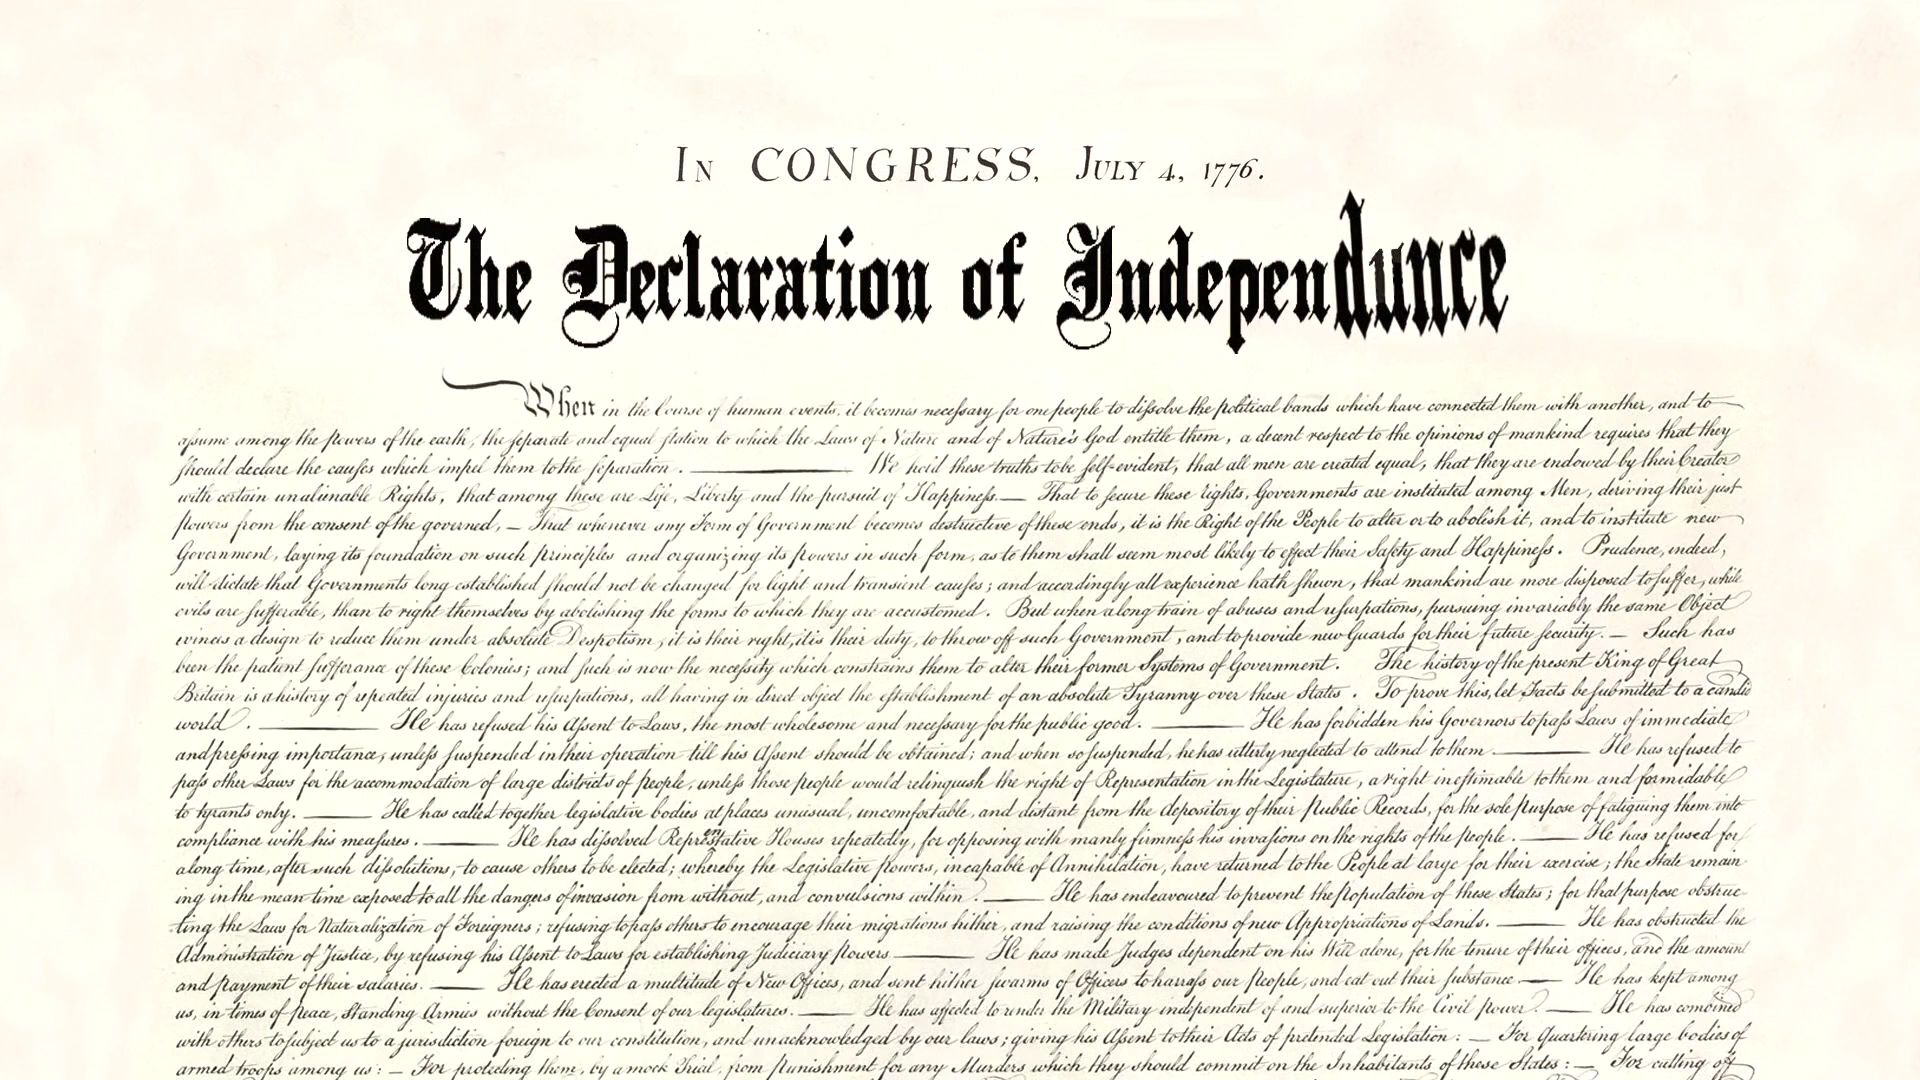 In CONGRESS, July 4, 1776.
The Declaration of Independunce
When in the Course of human events, it becomes necessary for one people to dissolve the political bands which have connected them with another, and to
assume among the powers of the earth, the separate and equal station to which the Laws of Nature and of Nature's God entitle them, a decent respect to the opinions of mankind requires that they
should declare the causes which impel them to the separation. ——— We hold these truths to be self-evident, that all men are created equal, that they are endowed by their Creator
with certain unalienable Rights, that among these are Life, Liberty and the pursuit of Happiness.— That to secure these rights, Governments are instituted among Men, deriving their just
powers from the consent of the governed, — That whenever any Form of Government becomes destructive of these ends, it is the Right of the People to alter or to abolish it, and to institute new
Government, laying its foundation on such principles and organizing its powers in such form, as to them shall seem most likely to effect their Safety and Happiness. Prudence, indeed,
will dictate that Governments long established should not be changed for light and transient causes; and accordingly all experience hath shewn, that mankind are more disposed to suffer, while
evils are sufferable, than to right themselves by abolishing the forms to which they are accustomed. But when a long train of abuses and usurpations, pursuing invariably the same Object
evinces a design to reduce them under absolute Despotism, it is their right, it is their duty, to throw off such Government, and to provide new Guards for their future security. — Such has
been the patient sufferance of these Colonies; and such is now the necessity which constrains them to alter their former Systems of Government. The history of the present King of Great
Britain is a history of repeated injuries and usurpations, all having in direct object the establishment of an absolute Tyranny over these States. To prove this, let Facts be submitted to a candid
world. ——— He has refused his Assent to Laws, the most wholesome and necessary for the public good. ——— He has forbidden his Governors to pass Laws of immediate
and pressing importance, unless suspended in their operation till his Assent should be obtained; and when so suspended, he has utterly neglected to attend to them. ——— He has refused to
pass other Laws for the accommodation of large districts of people, unless those people would relinquish the right of Representation in the Legislature, a right inestimable to them and formidable
to tyrants only. ——— He has called together legislative bodies at places unusual, uncomfortable, and distant from the depository of their Public Records, for the sole purpose of fatiguing them into
compliance with his measures. ——— He has dissolved Representative Houses repeatedly, for opposing with manly firmness his invasions on the rights of the people. ——— He has refused for
a long time, after such dissolutions, to cause others to be elected; whereby the Legislative powers, incapable of Annihilation, have returned to the People at large for their exercise; the State remain-
ing in the mean time exposed to all the dangers of invasion from without, and convulsions within. ——— He has endeavoured to prevent the population of these States; for that purpose obstruc-
ting the Laws for Naturalization of Foreigners; refusing to pass others to encourage their migrations hither, and raising the conditions of new Appropriations of Lands. ——— He has obstructed the
Administration of Justice, by refusing his Assent to Laws for establishing Judiciary powers ——— He has made Judges dependent on his Will alone, for the tenure of their offices, and the amount
and payment of their salaries. ——— He has erected a multitude of New Offices, and sent hither swarms of Officers to harrass our People, and eat out their substance — He has kept among
us, in times of peace, Standing Armies without the Consent of our legislatures. ——— He has affected to render the Military independent of and superior to the Civil power. — He has combined
with others to subject us to a jurisdiction foreign to our constitution, and unacknowledged by our laws; giving his Assent to their Acts of pretended Legislation: — For Quartering large bodies of
armed troops among us: — For protecting them, by a mock Trial, from punishment for any Murders which they should commit on the Inhabitants of these States: — For cutting off